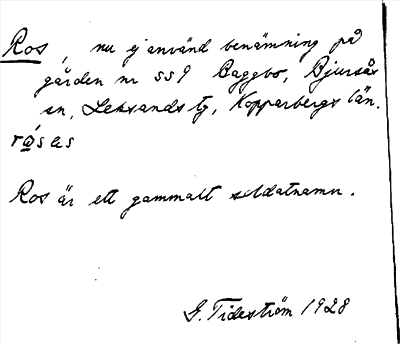 Ros, nu ej använd benämning på
gården nr 559 Baggbo, Bjursås
sn, Leksands tg, Kopparbergs län.
rósas
Ros är ett gammalt soldatnamn.
G. Tideström 1928